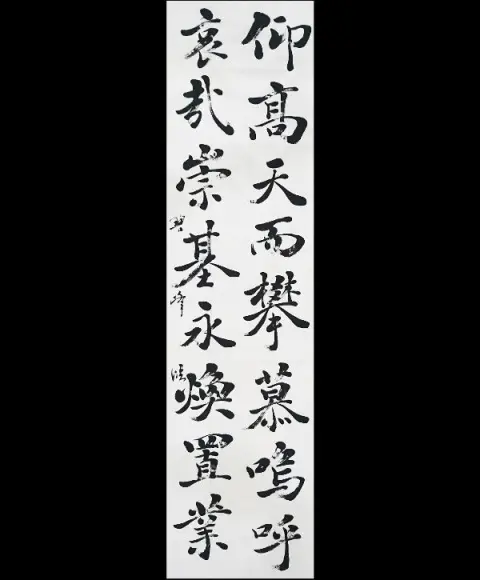 仰髙天而攀慕嗚呼
哀哉崇基永煥置業
峰
臨